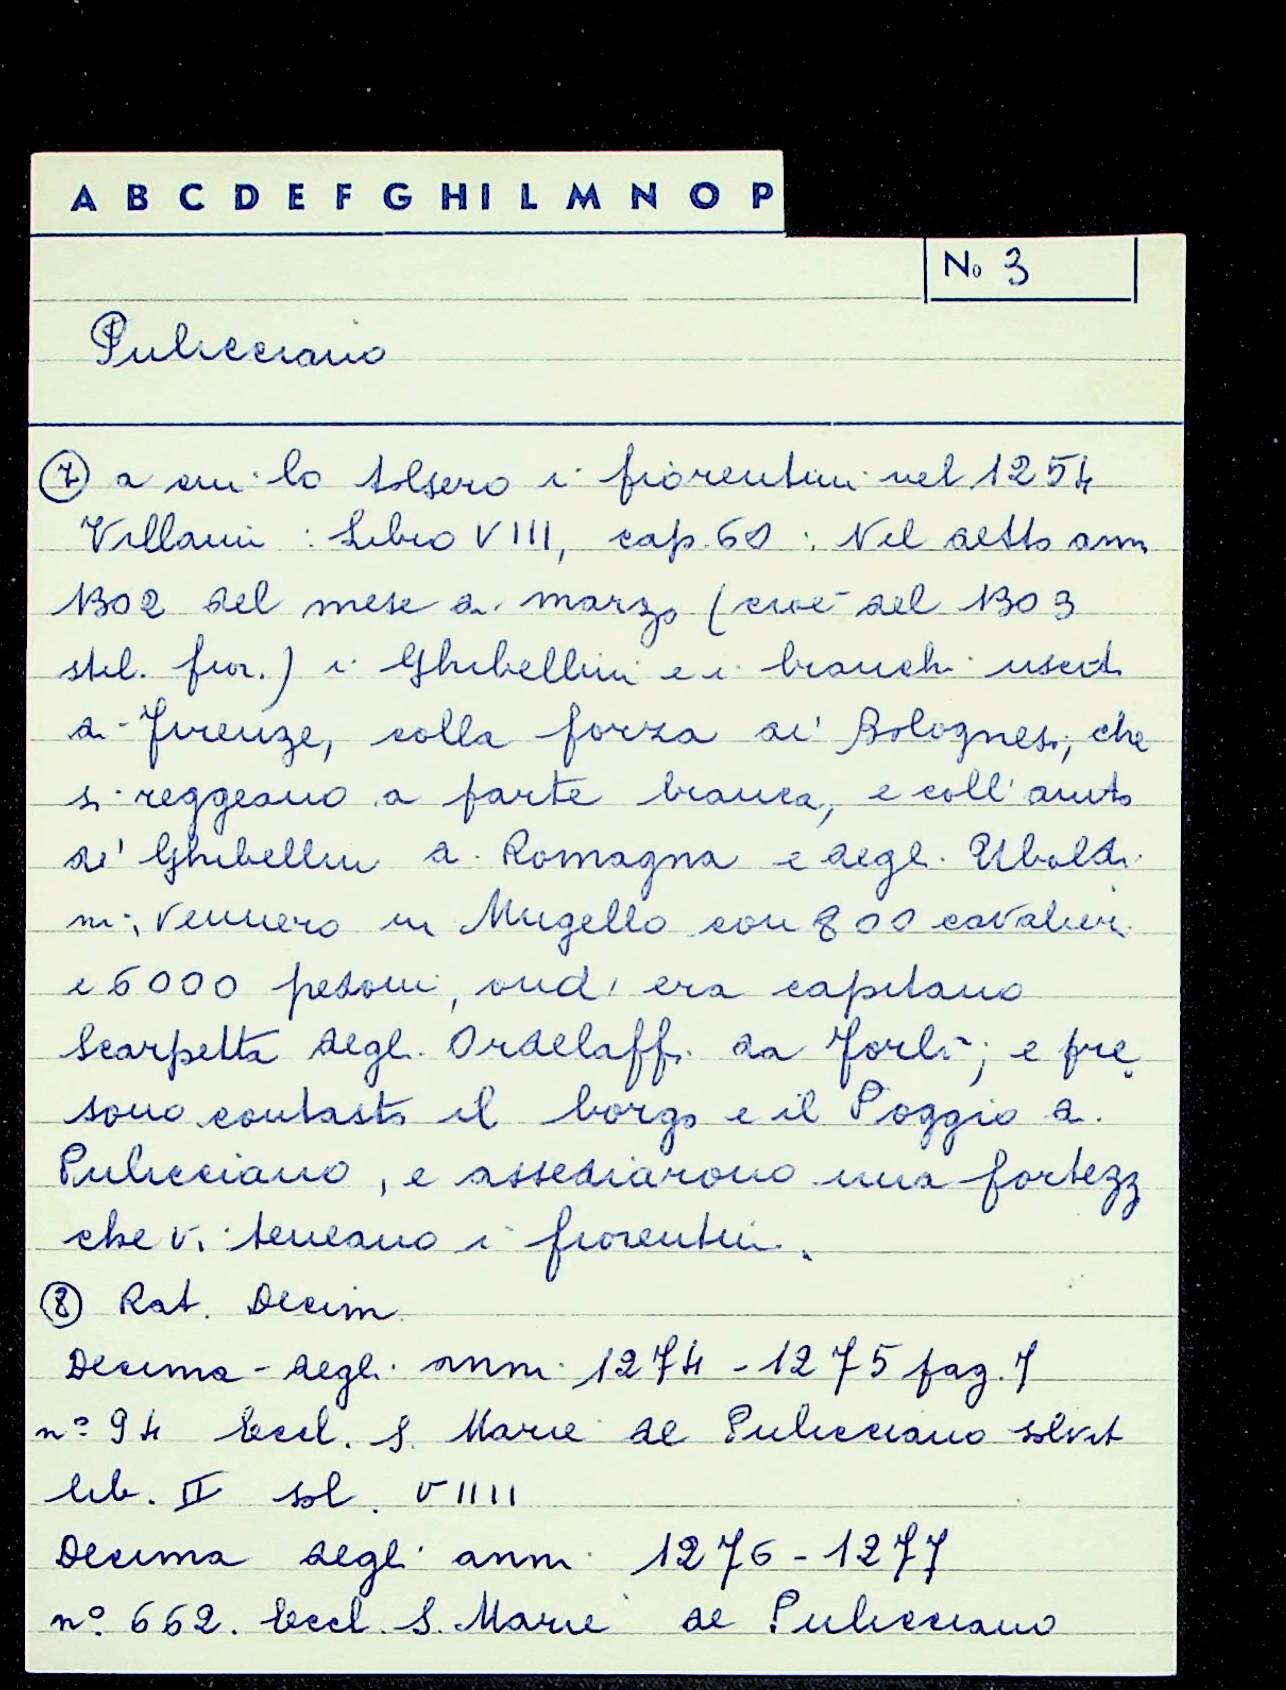 A B C D E F G H I L M N O P
No 3
Pulicciano
⑦ a cui lo tolsero i fiorentini nel 1254
Villani : Libro VIII, cap. 60 : Nel detto ann
1302 del mese di marzo (cioè del 1303
stil. fior.) i Ghibellini e i bianchi usciti
di Firenze, colla forza de' Bolognesi, che
si reggeano a parte bianca, e coll'aiuto
de' Ghibellini di Romagna e degli Ubaldi
ni, vennero in Mugello con 800 cavalieri
e 6000 pedoni, ond'era capitano
Scarpetta degli Ordelaffi da Forlì; e pre
sono contasto il borgo e il Poggio di
Pulicciano, e assediarono una fortezz
che vi teneano i fiorentini.
⑧ Rat. Decim.
Decima degli anni 1274-1275 pag. 7
n° 94 Eccl. S. Marie de Pulicciano solvit
lib. II sol. VIIII
Decima degli anni 1276-1277
n° 662. Eccl. S. Marie de Pulicciano